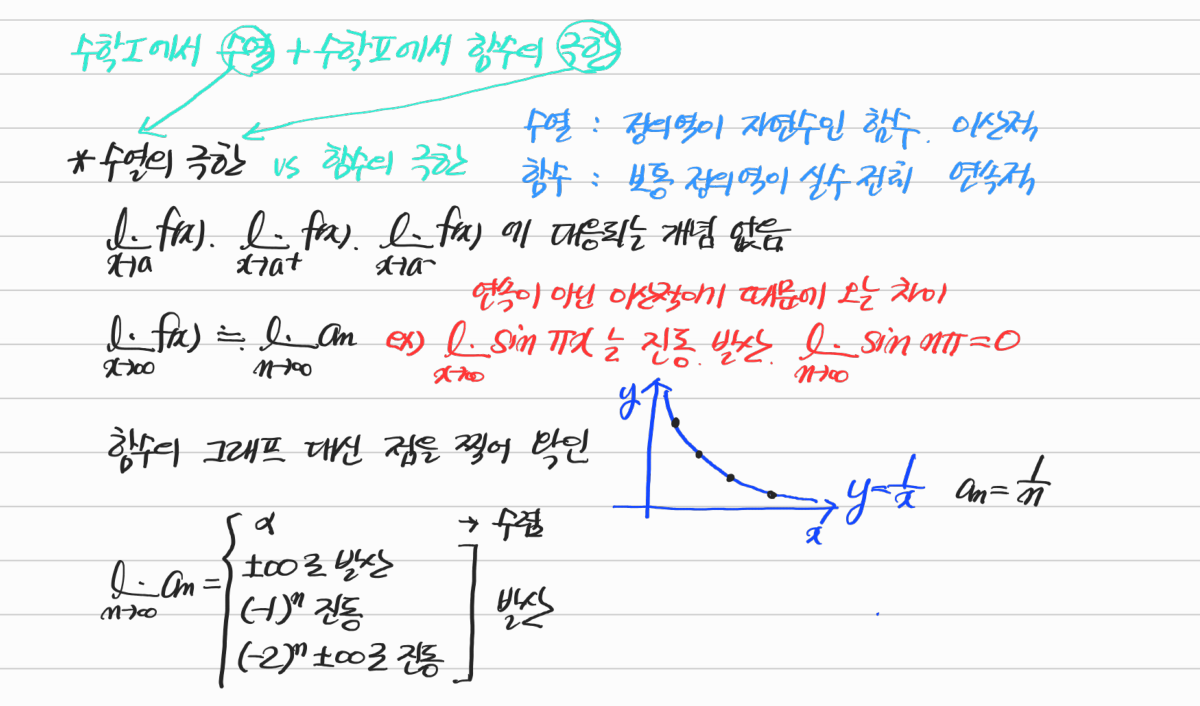 수학I에서 수열 + 수학II에서 함수의 극한
* 수열의 극한 vs 함수의 극한
수열 : 정의역이 자연수인 함수. 이산적
함수 : 보통 정의역이 실수 전체 연속적
lim x→a f(x). lim x→a+ f(x). lim x→a- f(x) 에 대응되는 개념 없음
연속이 아닌 이산적이기 때문에 오는 차이
lim x→∞ f(x) ≒ lim n→∞ an ex) lim x→∞ sin πx 는 진동. 발산. lim n→∞ sin nπ = 0
함수의 그래프 대신 점을 찍어 확인
y
x
y = 1/x an = 1/n
lim n→∞ an =
α → 수렴
±∞로 발산
(-1)^n 진동
(-2)^n ±∞로 진동
발산